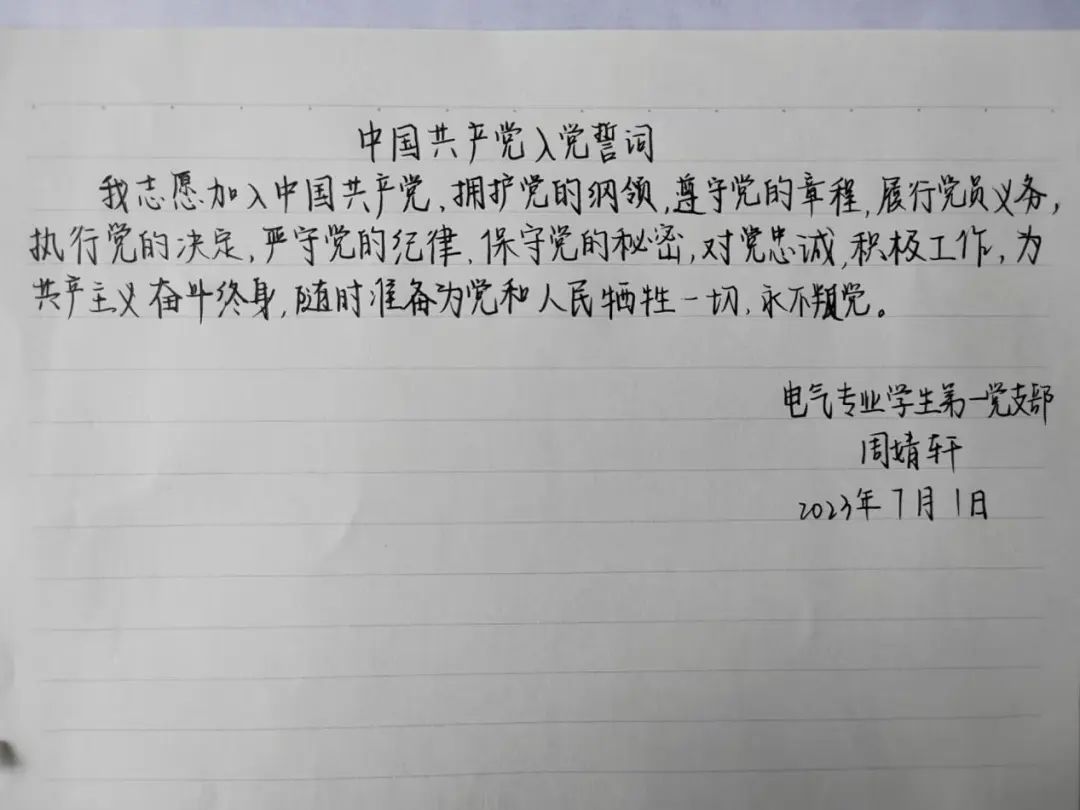 中国共产党入党誓词
我志愿加入中国共产党,拥护党的纲领,遵守党的章程,履行党员义务,
执行党的决定,严守党的纪律,保守党的秘密,对党忠诚,积极工作,为
共产主义奋斗终身,随时准备为党和人民牺牲一切,永不叛党。
电气专业学生第一党支部
周婧轩
2023年7月1日